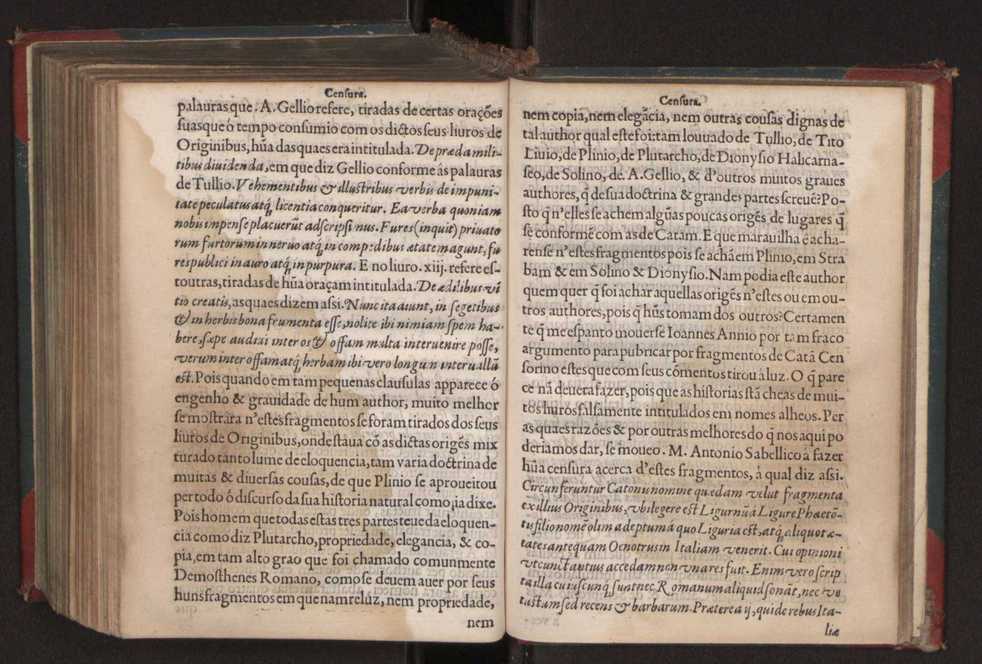 Censura.
palauras que. A. Gellio refere, tiradas de certas orações
suas que ó tempo consumio com os dictos seus liuros de
Originibus, hũa das quaes era intitulada. De præda mili-
tibus diuidenda, em que diz Gellio conforme ás palauras
de Tullio. Vehementibus & illustribus verbis de impuni-
tate peculatus atq̃ licentia conqueritur. Ea verba quoniam
nobis impense placuerũt adscripsimus. Fures (inquit) priuato
rum furtorum in neruo atq̃ in compedibus ætatem agunt, fu
res publici in auro atq̃ in purpura. E no liuro. xiij. refere es-
toutras, tiradas de hũa oraçam intitulada. De ædilibus vi
tio creatis, as quaes dizem assi. Nunc ita aiunt, in segetibus
& in herbis bona frumenta esse, nolite ibi nimiam spem ha-
bere, sæpe audiui inter os & offam multa interuenire posse,
verum inter offam atq̃ herbam ibi vero longum interuallũ
est. Pois quando em tam pequenas clausulas apparece ó
engenho & grauidade de hum author, muito melhor
se mostrara n'estes fragmentos se foram tirados dos seus
liuros de Originibus, onde staua cõ as dictas origẽs mix
turado tanto lume de eloquencia, tam varia doctrina de
muitas & diuersas cousas, de que Plinio se aproueitou
per todo ó discurso da sua historia natural como ja dixe.
Pois homem que todas estas tres partes teue da eloquen-
cia como diz Plutarcho, propriedade, elegancia, & co-
pia, em tam alto grao que foi chamado comunmente
Demosthenes Romano, como se deuem auer por seus
huns fragmentos em que nam reluz, nem propriedade,
nem
Censura.
nem copia, nem elegãcia, nem outras cousas dignas de
tal author qual este foi tam louuado de Tullio, de Tito
Liuio, de Plinio, de Plutarcho, de Dionysio Halicarna-
seo, de Solino, de. A. Gellio, & d'outros muitos graues
authores, q̃ de sua doctrina & grandes partes screuẽ? Po-
sto q̃ n'elles se achem algũas poucas origẽs de lugares q̃
se conformẽ com as de Catam. E que marauilha é acha-
rense n'estes fragmentos pois se achã em Plinio, em Stra
bam & em Solino & Dionysio. Nam podia este author
quem quer q̃ foi achar aquellas origẽs n'estes ou em ou-
tros authores, pois q̃ hũs tomam dos outros? Certamen
te q̃ me espanto mouerse Ioannes Annio por tam fraco
argumento para pubricar por fragmentos de Catã Cen
sorino estes que com seus cõmentos tirou á luz. O q̃ pare
ce nã deuera fazer, pois que as historias stã cheas de mui-
tos liuros falsamente intitulados em nomes alheos. Per
as quaes razões & por outras melhores do q̃ nos aqui po
deriamos dar, se moueo. M. Antonio Sabellico á fazer
hũa censura acerca d'estes fragmentos, á qual diz assi.
Circunferuntur Catonis nomine quædam velut fragmenta
ex illius Originibus, vbi legere est Ligurnũ à Ligure Phaetõ-
tis filio nomẽ olim adeptum à quo Liguria est, atq̃ aliquot æ-
tates antequam Oenotrus in Italiam venerit. Cui opinioni
vt cunctantius accedam non vna res fuit. Enim vero scrip
ta illa cuiuscunq̃ sunt nec Romanum aliquid sonãt, nec ve
tustum sed recens & barbarum. Præterea ij, qui de rebus Ita-
liæ